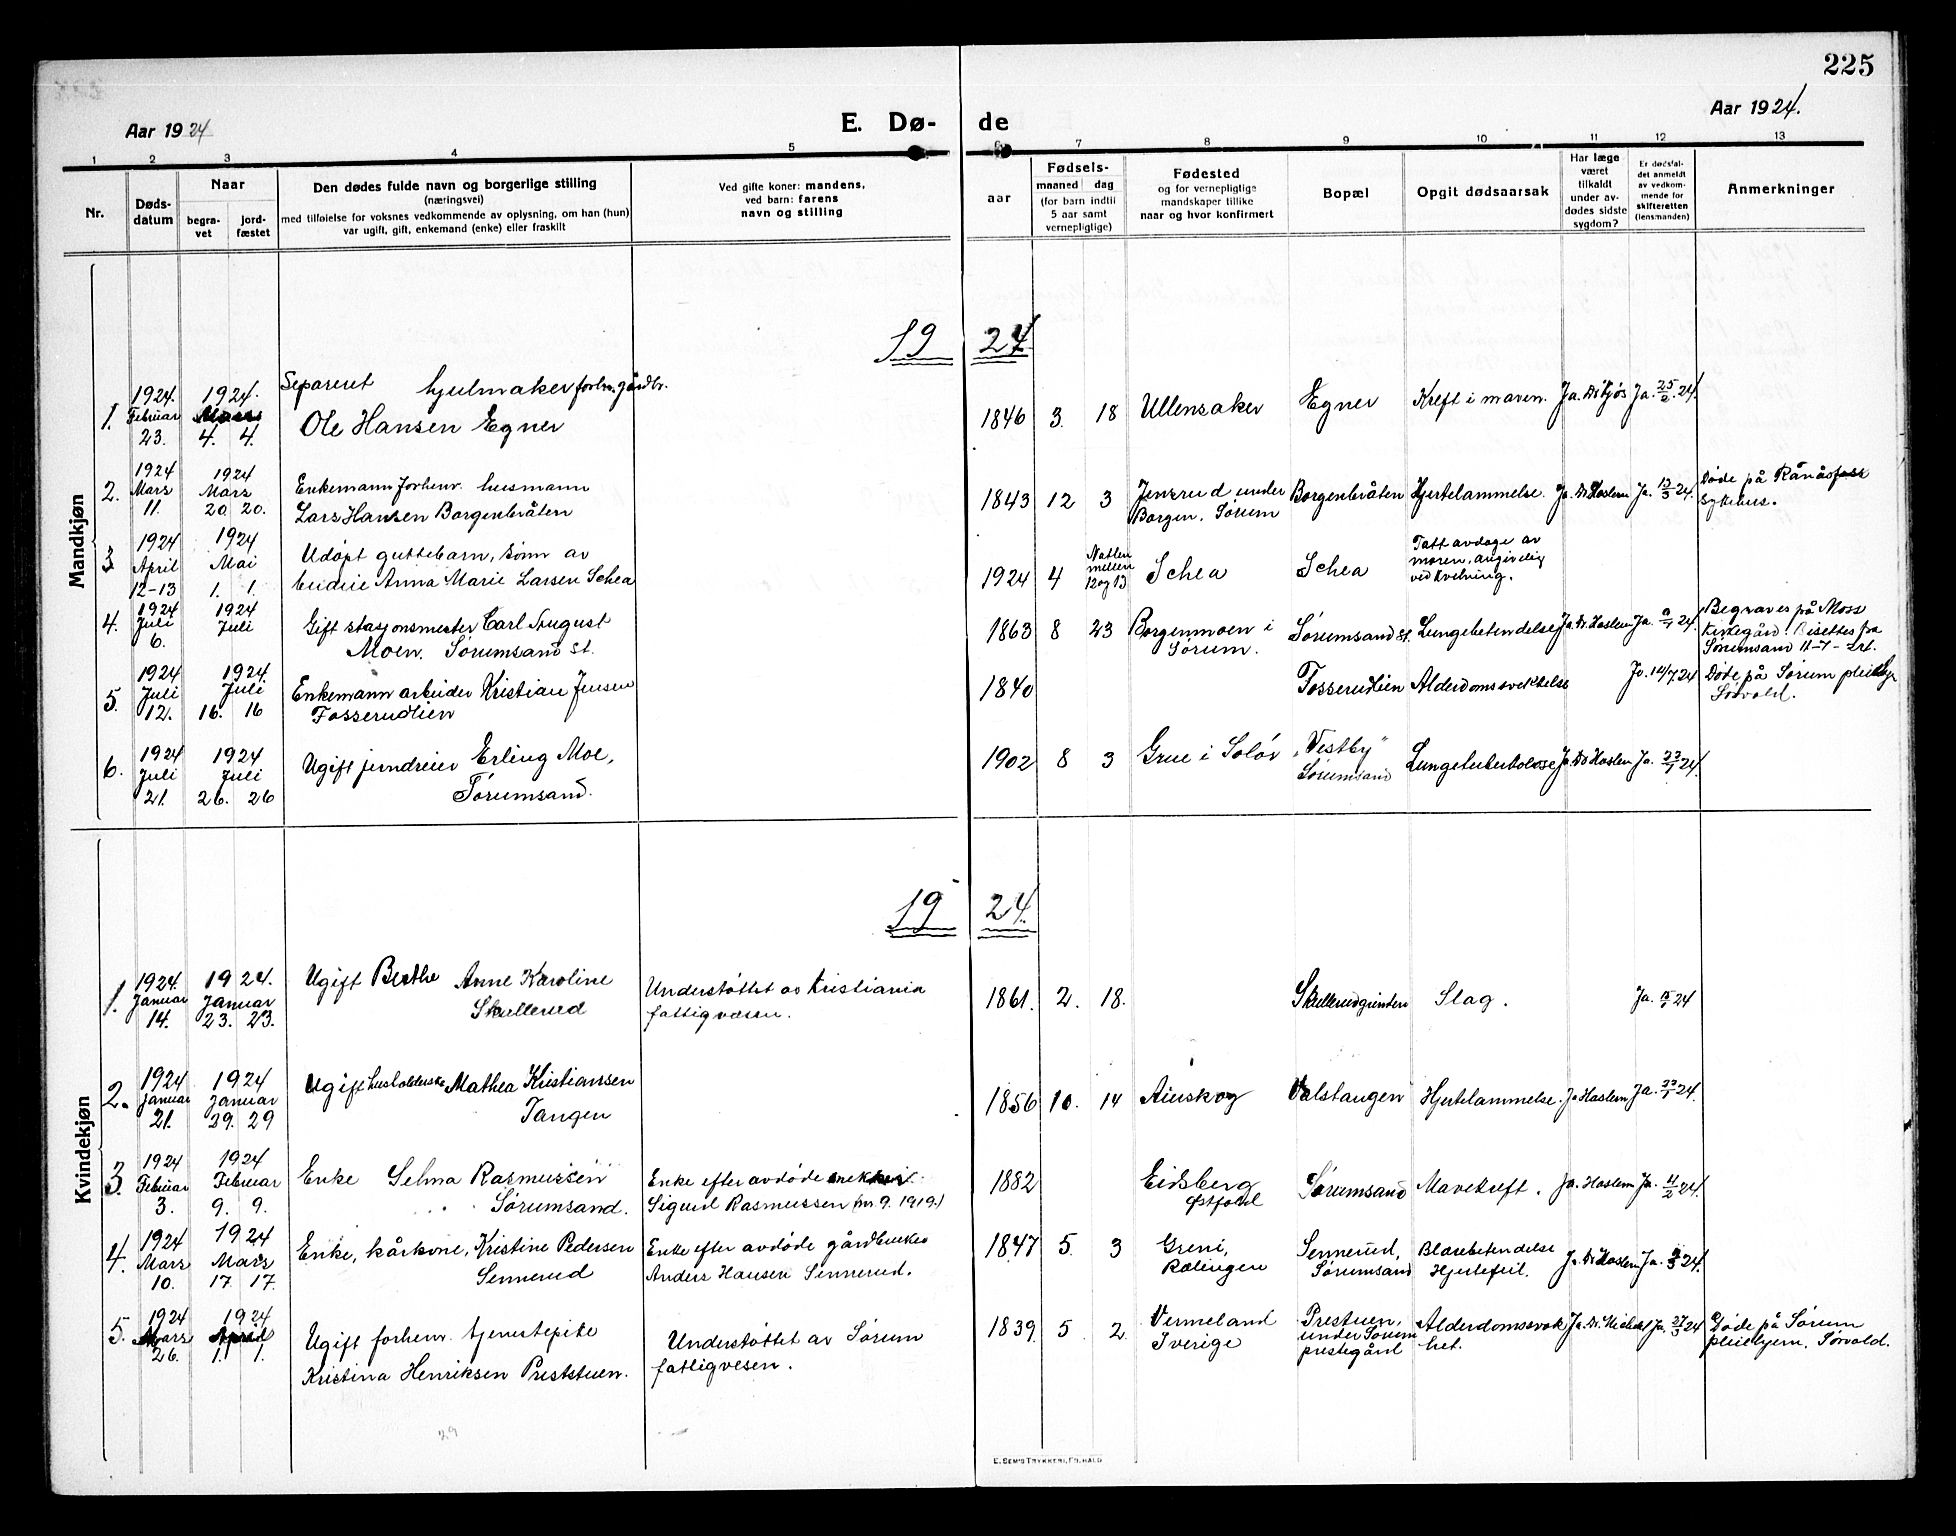 225
Aar 1924
E. Dø-
de
Aar 1924.
1 2 3 4 5 6 7 8 9 10 11 12 13
Nr.
Døds-
datum
Naar
begra-
vet
jord-
fæstet
Den dødes fulde navn og borgerlige stilling
(næringsvei)
med tilføielse for voksnes vedkommende av oplysning, om han (hun)
var ugift, gift, enkemand (enke) eller fraskilt
Ved gifte koner: mandens,
ved barn: farens
navn og stilling
aar
Fødsels-
maaned dag
(for barn indtil
5 aar samt
vernepligtige)
Fødested
og for vernepligtige
mandskaper tillike
naar og hvor konfirmert
Bopæl
Opgit dødsaarsak
Har læge
været
tilkaldt
under av-
dødes sidste
sygdom?
Er dødsfal-
det anmeldt
av vedkom-
mende for
skifteretten
(lensmanden)
Anmerkninger
Mandkjøn
19 24
1.
1924.
Februar
23.
1924.
Mars
4. 4.
Separeret hjulmaker forhv. gårdbr.
Ole Hansen Egner
1846 3. 18
Ullensaker
Egner
Kreft i maven.
Ja. Dr Tjøs
Ja. 25/2 24.
2.
1924
Mars
11.
1924
Mars
20 20.
Enkemann forhenv. husmann
Lars Hansen Borgenbråten
1843 12 3
Jensrud under
Borgen. Sørum
Borgenbråten
Hjertelammelse.
Ja. Dr Haslem
Ja. 13/3 24.
Døde på Rånåsfoss
sykehus.
3
1924
April
12-13
1924
Mai
1. 1.
Udøpt guttebarn, sønn av
budeie Anna Marie Larsen Schea
1924 4
Natten
mellem
12 og 13
Schea
Schea
Tatt av dage av
moren, angivelig
ved kvelning.
4.
1924
Juli
6.
1924
Juli
Gift stasjonsmester Carl August
Moen. Sørumsand st.
1863 8 23
Borgenmoen i
Sørum.
Sørumsand st.
Lungebetendelse
Ja. Dr. Haslem
Ja. 9/7 24.
Begraves på Moss
kirkegård. Bisettes fra
Sørumsand 11-7-
5.
1924
Juli
12.
1924.
Juli
16. 16
Enkemann arbeider Kristian Jensen
Fosserudlien
1840
Fosserudlien
Alderdomssvekkelse
Ja. 14/7 24
Døde på Sørum pleiehj.
Sørvald.
6.
1924
Juli
21.
1924
Juli
26. 26
Ugift jerndreier Erling Moe,
Sørumsand.
1902 8 3
Grue i Solør
"Vestby"
Sørumsand
Lungetuberkolose
Ja. Dr Haslem
Ja. 23/7 24.
Kvindekjøn
19 24.
1.
1924.
Januar
14.
1924.
Januar
23. 23.
Ugift Berthe Anne Karoline
Skullerud
Understøttet av Kristiania
fattigvæsen.
1861. 2. 18.
Skullerudgrinden
Slag.
Ja. 15/1 24
2.
1924
Januar
21.
1924
Januar
29. 29
Ugift husholderske Mathea Kristianssen
Tangen
1856 10. 14
Aurskog
Valstangen
Hjertelammelse.
Ja Haslem
Ja. 22/1 24.
3.
1924
Februar
3.
1924
Februar
9. 9.
Enke Selma Rasmussen
Sørumsand.
Enke efter avdøde snekker
Sigurd Rasmussen (nr. 9. 1919.)
1882
Eidsberg
Østfold
Sørumsand
Mavekreft.
Ja. Haslem
Ja. 11/2 24.
4.
1924
Mars
10.
1924
Mars
17. 17.
Enke, kårkone, Kristine Pedersen
Sennerud
Enke efter avdøde gårdbruker
Anders Hansen Sennerud.
1847 5. 3
Greni,
Rælingen
Sennerud,
Sørumsand
Blærebetendelse
Hjertefeil.
Ja. Dr Haslem
Ja. 24.
5.
1924
Mars
26.
1924
April
1. 1.
Ugift forhenv. tjenestepike
Kristina Henriksen Preststuen.
Understøttet av Sørum
fattigvesen.
1839. 5. 2
Vermeland
Sverige
Prestuen,
under Sørum
prestegård
Alderdomssvak
het.
Ja. Dr.
Ja. 27/3 24
Døde på Sørum
pleiehjem. Sørvald.
29
E. SEM'S TRYKKERI, FR.HALD